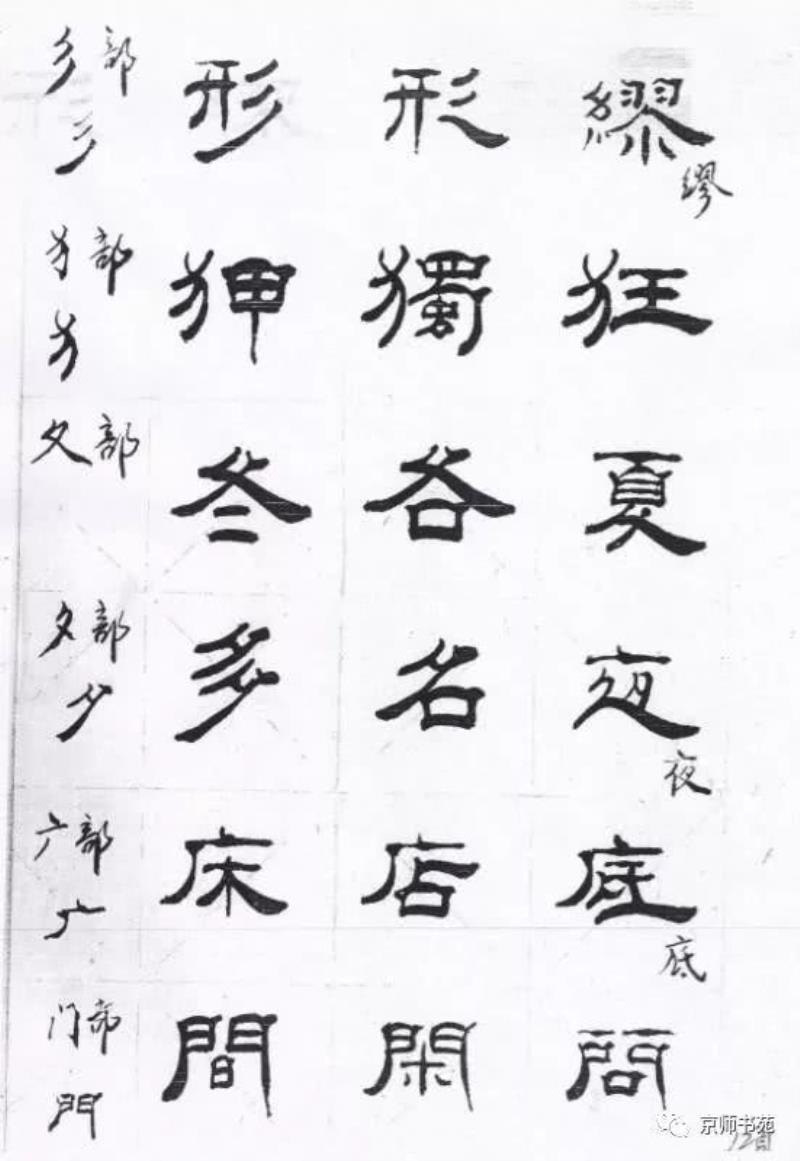 彡部 形 形 繆
彡 缪
犭部 狎 獨 狂
犭
夂部 冬 各 夏
夕部 多 名 夜
夕 夜
广部 床 店 底
广 底
门部 間 閑 問
門
京师书苑